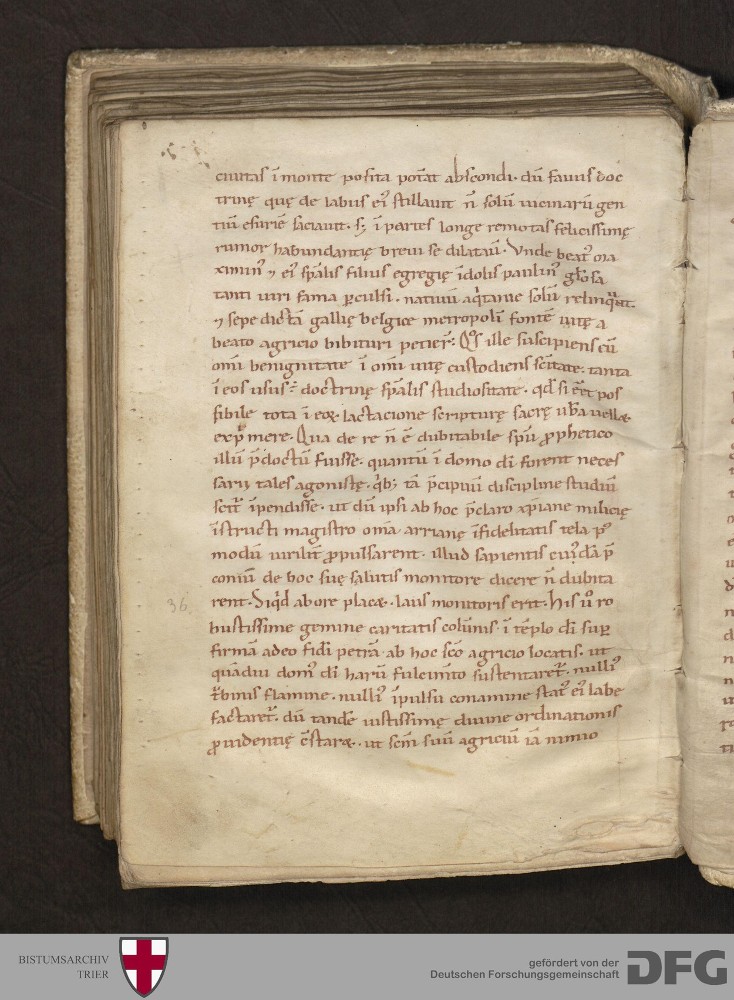 ciuitas ī monte posita potat̄ abscondi· dū fauus doc
trinę quę de labiis ei᷒ stillauit n̄ solū uicinarū gen
tiū esuriē saciauit· s; ī partes longe remotas felicissimę
rumor habundantię breui se dilatauit· Vnde beat᷒ ma
ximin᷒ ⁊ ei᷒ sp̄alis filius egregię īdolis paulin᷒ gl̄osa
tanti uiri fama ꝑculsi· natiuū aq̇tanie solū relinqūt·
⁊ sepe dictā gallię belgice metropolī fontē uitę a
beato agricio bibituri petier̄· Qͦs ille suscipiens cū
om̄i benignitate ī om̄i uitę custodiens sc̄itate· tanta
ī eos usus ē doctrinę sp̄alis studiositate· qd̄ si eēt pos
sibile tota ī eoꝝ lactacione scripturę sacrę ub̄a uellꝫ
exp̄mere· Qua de re n̄ ē dubitabile sp̄u ꝓphetico
illū p̄doctū fuisse· quantū ī domo dī forent neces
sarij tales agonistę· qͥb; tā p̄cipuū discipline studiū
īpendisse· ut dū ipsi ab hoc p̄claro xp̄iane milicię
īstructi magistro om̄a arrianę īfidelitatis tela
modū uirilit̄ ꝓpulsarent· illud sapientis cui᷒dā p̄
coniū de hoc suę salutis monitore dicere n̄ dubita
rent· Siqͥd ab ore placꝫ· laus monitoris erit· His u̾o ro
bustissime gemine caritatis colūnis· ī tēplo dī sup̄
firmā adeo fidī petrā ab hoc sc̄o agricio locatis· ut
quādiu dom᷒ dī harū fulcim̄to sustentaret᷑· nulli᷒
t̄binis flamine· nulli᷒ īpulsu conamine stat᷒ ei᷒ labe
factaret᷑· dū tandē iustissimę diuine ordinationis
ꝓuidentię c̄starꝫ· ut sc̄m suū agriciū iā nimio
36
BISTUMSARCHIV
TRIER
gefördert von der
Deutschen Forschungsgemeinschaft
DFG